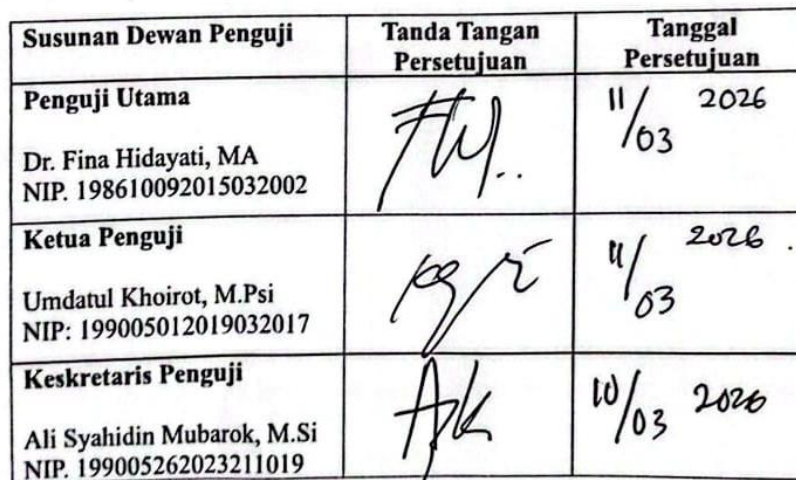 Susunan Dewan Penguji
Tanda Tangan
Persetujuan
Tanggal
Persetujuan
Penguji Utama
Dr. Fina Hidayati, MA
NIP. 198610092015032002
11/03 2026
Ketua Penguji
Umdatul Khoirot, M.Psi
NIP: 199005012019032017
11/03 2026
Keskretaris Penguji
Ali Syahidin Mubarok, M.Si
NIP. 199005262023211019
10/03 2026